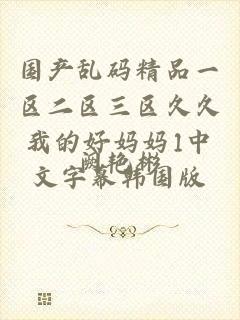 国产乱码精品一
区二区三区久久
我的好妈妈1中
阙艳彬
文字幕韩国版